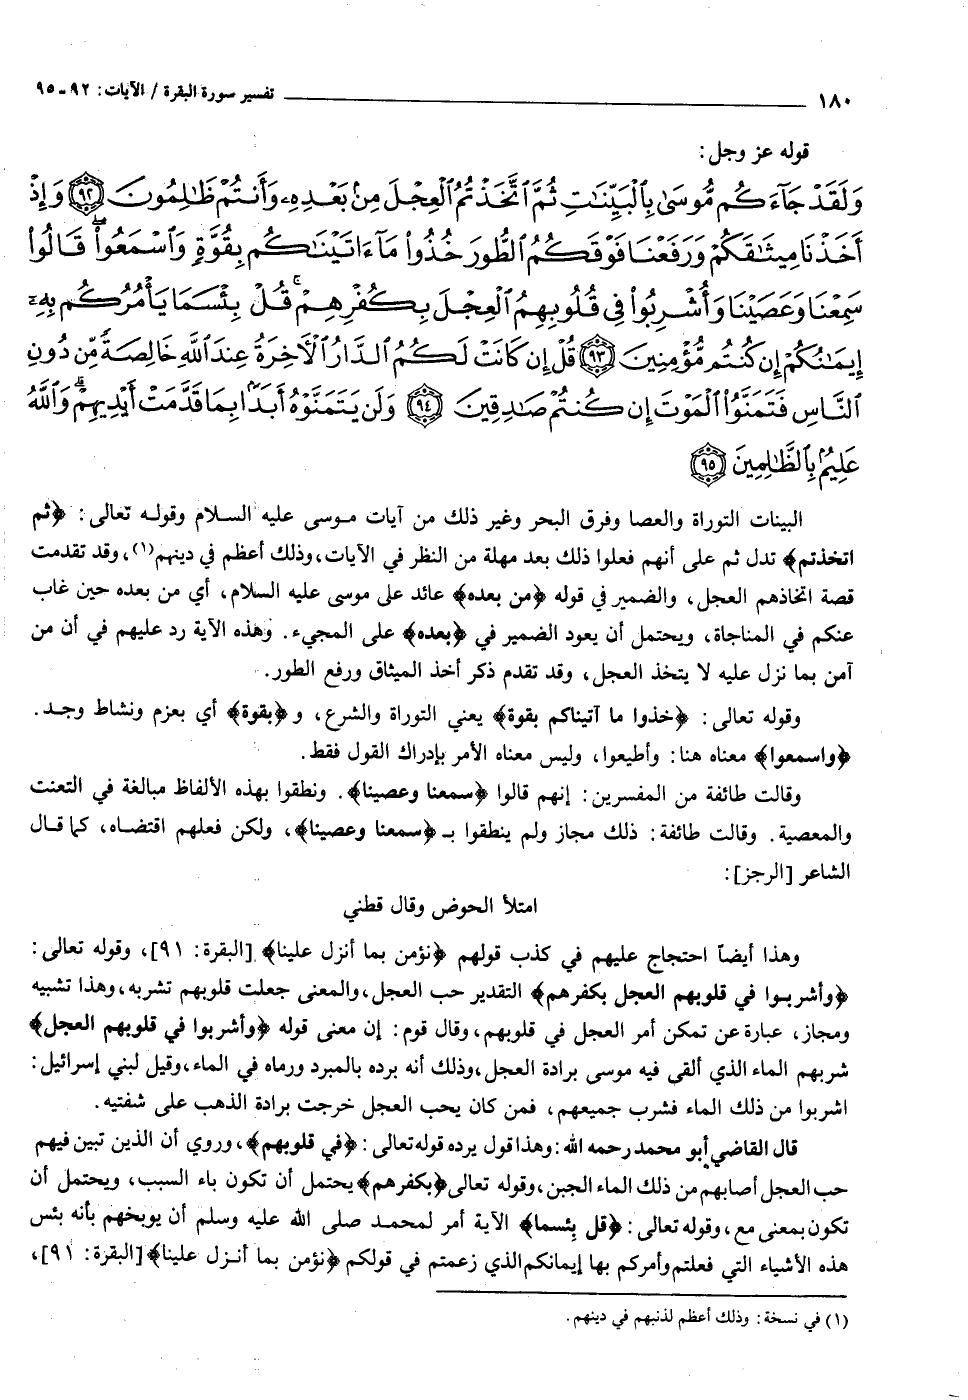 ١٨٠ تفسير سورة البقرة / الآيات: ٩٢ - ٩٥
قوله عز وجل:
وَلَقَدْ جَآءَكُم مُّوسَىٰ بِٱلْبَيِّنَٰتِ ثُمَّ ٱتَّخَذْتُمُ ٱلْعِجْلَ مِنۢ بَعْدِهِۦ وَأَنتُمْ ظَٰلِمُونَ ﴿٩٢﴾ وَإِذْ
أَخَذْنَا مِيثَٰقَكُمْ وَرَفَعْنَا فَوْقَكُمُ ٱلطُّورَ خُذُوا۟ مَآ ءَاتَيْنَٰكُم بِقُوَّةٍ وَٱسْمَعُوا۟ۖ قَالُوا۟
سَمِعْنَا وَعَصَيْنَا وَأُشْرِبُوا۟ فِى قُلُوبِهِمُ ٱلْعِجْلَ بِكُفْرِهِمْۚ قُلْ بِئْسَمَا يَأْمُرُكُم بِهِۦٓ
إِيمَٰنُكُمْ إِن كُنتُم مُّؤْمِنِينَ ﴿٩٣﴾ قُلْ إِن كَانَتْ لَكُمُ ٱلدَّارُ ٱلْأَخِرَةُ عِندَ ٱللَّهِ خَالِصَةً مِّن دُونِ
ٱلنَّاسِ فَتَمَنَّوُا۟ ٱلْمَوْتَ إِن كُنتُمْ صَٰدِقِينَ ﴿٩٤﴾ وَلَن يَتَمَنَّوْهُ أَبَدًۢا بِمَا قَدَّمَتْ أَيْدِيهِمْۗ وَٱللَّهُ
عَلِيمٌۢ بِٱلظَّٰلِمِينَ ﴿٩٥﴾
البينات التوراة والعصا وفرق البحر وغير ذلك من آيات موسى عليه السلام وقوله تعالى: ﴿ثم
اتخذتم﴾ تدل ثم على أنهم فعلوا ذلك بعد مهلة من النظر في الآيات، وذلك أعظم في دينهم(١)، وقد تقدمت
قصة اتخاذهم العجل، والضمير في قوله ﴿من بعده﴾ عائد على موسى عليه السلام، أي من بعده حين غاب
عنكم في المناجاة، ويحتمل أن يعود الضمير في ﴿بعده﴾ على المجيء. وهذه الآية رد عليهم في أن من
آمن بما نزل عليه لا يتخذ العجل، وقد تقدم ذكر أخذ الميثاق ورفع الطور.
وقوله تعالى: ﴿خذوا ما آتيناكم بقوة﴾ يعني التوراة والشرع، و ﴿بقوة﴾ أي بعزم ونشاط وجد.
﴿واسمعوا﴾ معناه هنا: وأطيعوا، وليس معناه الأمر بإدراك القول فقط.
وقالت طائفة من المفسرين: إنهم قالوا ﴿سمعنا وعصينا﴾. ونطقوا بهذه الألفاظ مبالغة في التعنت
والمعصية. وقالت طائفة: ذلك مجاز ولم ينطقوا بـ ﴿سمعنا وعصينا﴾، ولكن فعلهم اقتضاه، كما قال
الشاعر [الرجز]:
امتلأ الحوض وقال قطني
وهذا أيضاً احتجاج عليهم في كذب قولهم ﴿نؤمن بما أنزل علينا﴾ [البقرة: ٩١]، وقوله تعالى:
﴿وأشربوا في قلوبهم العجل بكفرهم﴾ التقدير حب العجل، والمعنى جعلت قلوبهم تشربه، وهذا تشبيه
ومجاز، عبارة عن تمكن أمر العجل في قلوبهم، وقال قوم: إن معنى قوله ﴿وأشربوا في قلوبهم العجل﴾
شربهم الماء الذي ألقى فيه موسى برادة العجل، وذلك أنه برده بالمبرد ورماه في الماء، وقيل لبني إسرائيل:
اشربوا من ذلك الماء فشرب جميعهم، فمن كان يحب العجل خرجت برادة الذهب على شفتيه.
قال القاضي أبو محمد رحمه الله: وهذا قول يرده قوله تعالى: ﴿في قلوبهم﴾، وروي أن الذين تبين فيهم
حب العجل أصابهم من ذلك الماء الجبن، وقوله تعالى ﴿بكفرهم﴾ يحتمل أن تكون باء السبب، ويحتمل أن
تكون بمعنى مع، وقوله تعالى: ﴿قل بئسما﴾ الآية أمر لمحمد صلى الله عليه وسلم أن يوبخهم بأنه بئس
هذه الأشياء التي فعلتم وأمركم بها إيمانكم الذي زعمتم في قولكم ﴿نؤمن بما أنزل علينا﴾ [البقرة: ٩١]،
(١) في نسخة: وذلك أعظم لذنبهم في دينهم.